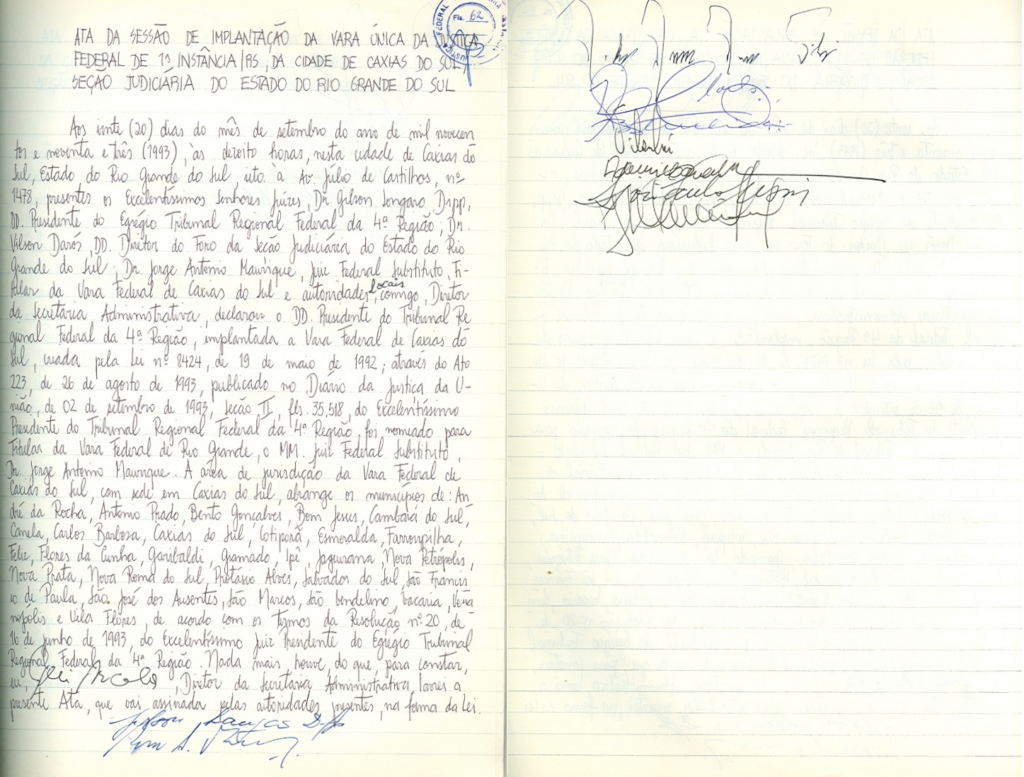 FEDERAL
Fls. 62
ATA DA SESSÃO DE IMPLANTAÇÃO DA VARA ÚNICA DA JUSTIÇA
FEDERAL DE 1ª INSTÂNCIA/RS, DA CIDADE DE CAXIAS DO SUL,
SEÇÃO JUDICIÁRIA DO ESTADO DO RIO GRANDE DO SUL
Aos vinte (20) dias do mês de setembro do ano de mil novecen
tos e noventa e três (1993), às dezoito horas, nesta cidade de Caxias do
Sul, Estado do Rio Grande do Sul, sito à Av. Júlio de Castilhos, nº
1478, presentes os Excelentíssimos Senhores Juízes, Dr. Gilson Langaro Dipp,
DD. Presidente do Egrégio Tribunal Regional Federal da 4ª Região, Dr.
Vilson Darós, DD. Diretor do Foro da Seção Judiciária do Estado do Rio
Grande do Sul; Dr. Jorge Antonio Maurique, Juiz Federal Substituto, Ti-
tular da Vara Federal de Caxias do Sul e autoridades locais, comigo, Diretor
da Secretaria Administrativa, declarou o DD. Presidente do Tribunal Re
gional Federal da 4ª Região, implantada a Vara Federal de Caxias do
Sul, criada pela Lei nº 8424, de 19 de maio de 1992; através do Ato
223, de 26 de agosto de 1993, publicado no Diário da Justiça da U-
nião, de 02 de setembro de 1993, seção II, fls. 35.518, do Excelentíssimo
Presidente do Tribunal Regional Federal da 4ª Região, foi nomeado para
Titular da Vara Federal de Rio Grande, o MM. Juiz Federal Substituto,
Dr. Jorge Antonio Maurique. A área de jurisdição da Vara Federal de
Caxias do Sul, com sede em Caxias do Sul, abrange os municípios de: An
dré da Rocha, Antonio Prado, Bento Gonçalves, Bom Jesus, Cambará do Sul,
Canela, Carlos Barbosa, Caxias do Sul, Cotiporã, Esmeralda, Farroupilha,
Feliz, Flores da Cunha, Garibaldi, Gramado, Ipê, Jaquirana, Nova Petrópolis,
Nova Prata, Nova Roma do Sul, Protásio Alves, Salvador do Sul, São Francis
co de Paula, São José dos Ausentes, São Marcos, São Vendelino, Vacaria, Vera
nópolis e Vila Flores, de acordo com os termos da Resolução nº 20, de
16 de junho de 1993, do Excelentíssimo Juiz Presidente do Egrégio Tribunal
Regional Federal da 4ª Região. Nada mais houve, do que, para constar,
eu, , Diretor da Secretaria Administrativa, lavrei a
presente Ata, que vai assinada pelas autoridades presentes, na forma da Lei.